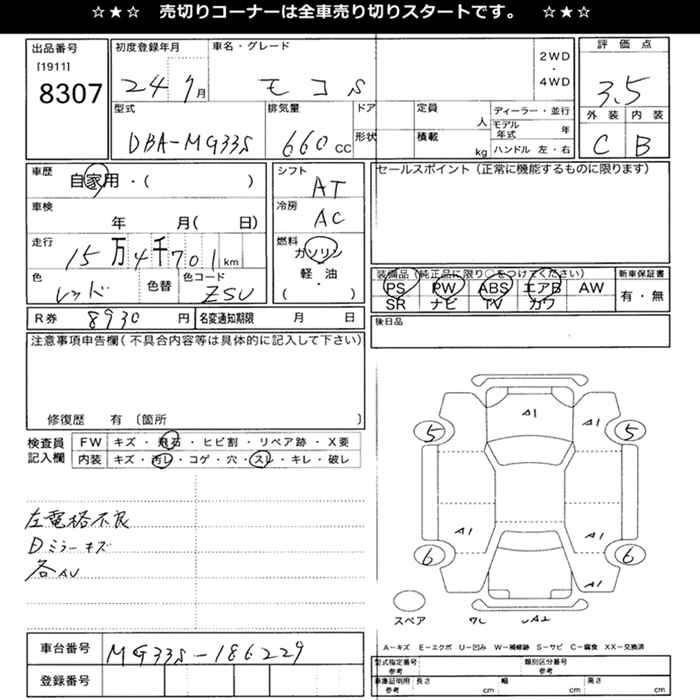 ☆★☆ 売切りコーナーは全車売り切りスタートです。 ☆★☆
出品番号
[1911]
8307
初度登録年月
24 7月
車名・グレード
モコ S
2WD
・
4WD
評価点
3.5
外装 内装
C B
型式
DBA-MG33S
排気量
660 CC
ドア
形状
定員
人
積載
kg
ディーラー・並行
モデル年式 年
ハンドル 左・右
車歴
自家用・( )
車検
年 月( 日)
走行
15万4千701km
色
レッド
色替
色コード
ZSU
シフト
AT
冷房
AC
燃料
ガソリン
軽・油
( )
セールスポイント(正常に機能するものに限ります)
装備品(純正品に限り○をつけてください)
PS PW ABS エアB AW
SR ナビ TV カワ
新車保証書
有・無
R券 8930円
名変通知期限 月 日
後日品
注意事項申告欄(不具合内容等は具体的に記入して下さい)
修復歴 有〔箇所 〕
検査員
記入欄
FW キズ・飛石・ヒビ割・リペア跡・X要
内装 キズ・汚レ・コゲ・穴・スレ・キレ・破レ
左電格不良
Dミラーキズ
各AU
A1
A1
5
5
A1
A1
6
6
A1
スペア
A2
A-キズ E-エクボ U-凹み W-補修跡 S-サビ C-腐食 XX-交換済
車台番号
MG33S-186229
登録番号
型式指定番号
参考
類別区分番号
参考
車庫証明用
参考
長さ cm
幅 cm
高さ cm